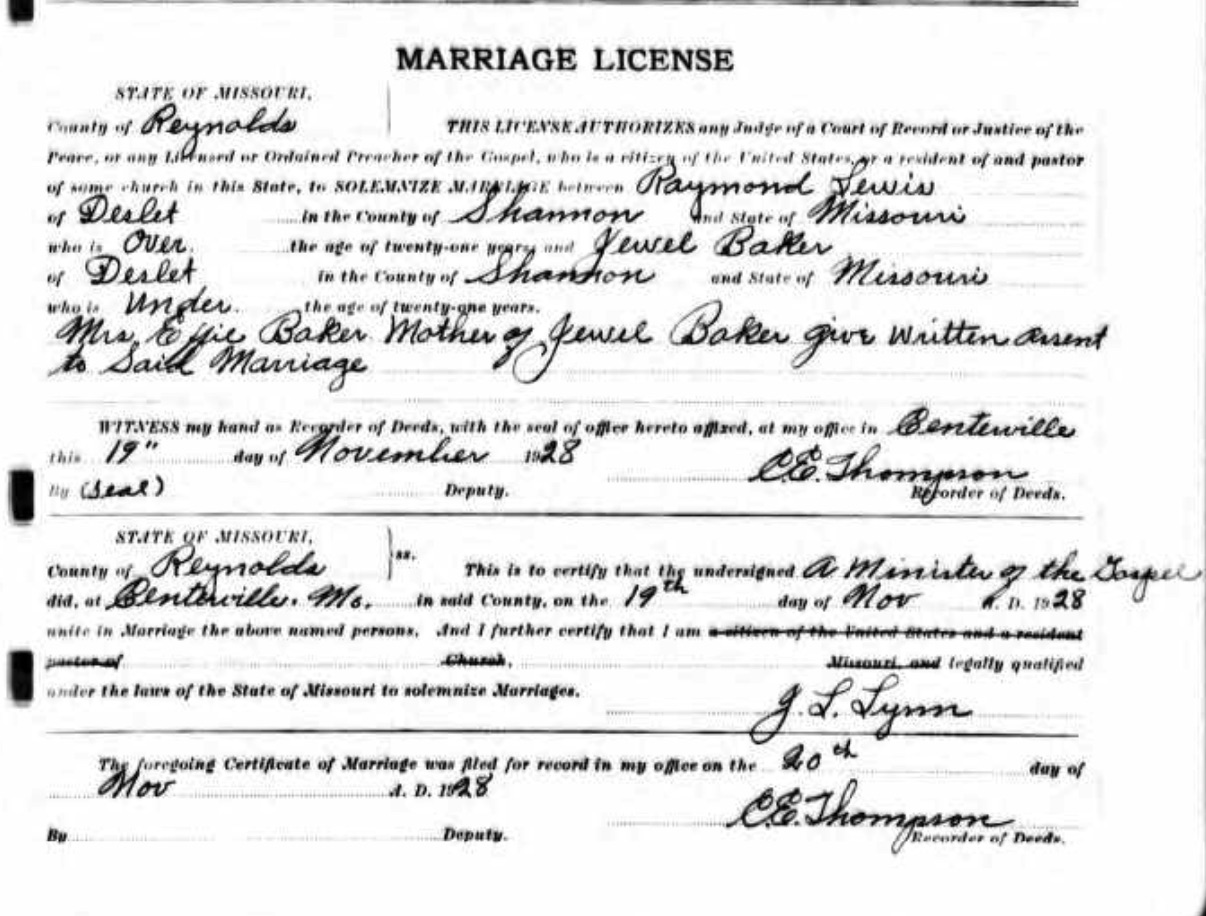 MARRIAGE LICENSE
STATE OF MISSOURI,
County of Reynolds THIS LICENSE AUTHORIZES any Judge of a Court of Record or Justice of the
Peace, or any Licensed or Ordained Preacher of the Gospel, who is a citizen of the United States, or a resident of and pastor
of some church in this State, to SOLEMNIZE MARRIAGE between Raymond Lewis
of Deslet in the County of Shannon and State of Missouri
who is Over. the age of twenty-one years, and Jewel Baker
of Deslet in the County of Shannon and State of Missouri
who is Under. the age of twenty-one years.
Mrs. Effie Baker Mother of Jewel Baker give Written assent
to Said Marriage
WITNESS my hand as Recorder of Deeds, with the seal of office hereto affixed, at my office in Centerville
this 19" day of November 1928 C.E. Thompson
By (Seal) Deputy. Recorder of Deeds.
STATE OF MISSOURI,
County of Reynolds ss. This is to certify that the undersigned A Minister of the Gospel
did, at Centerville. Mo. in said County, on the 19th day of Nov A. D. 1928
unite in Marriage the above named persons, And I further certify that I am a citizen of the United States and a resident
pastor of Church, Missouri, and legally qualified
under the laws of the State of Missouri to solemnize Marriages.
J. L. Lynn
The foregoing Certificate of Marriage was filed for record in my office on the 20th day of
Nov A. D. 1928
C.E. Thompson
By Deputy. Recorder of Deeds.